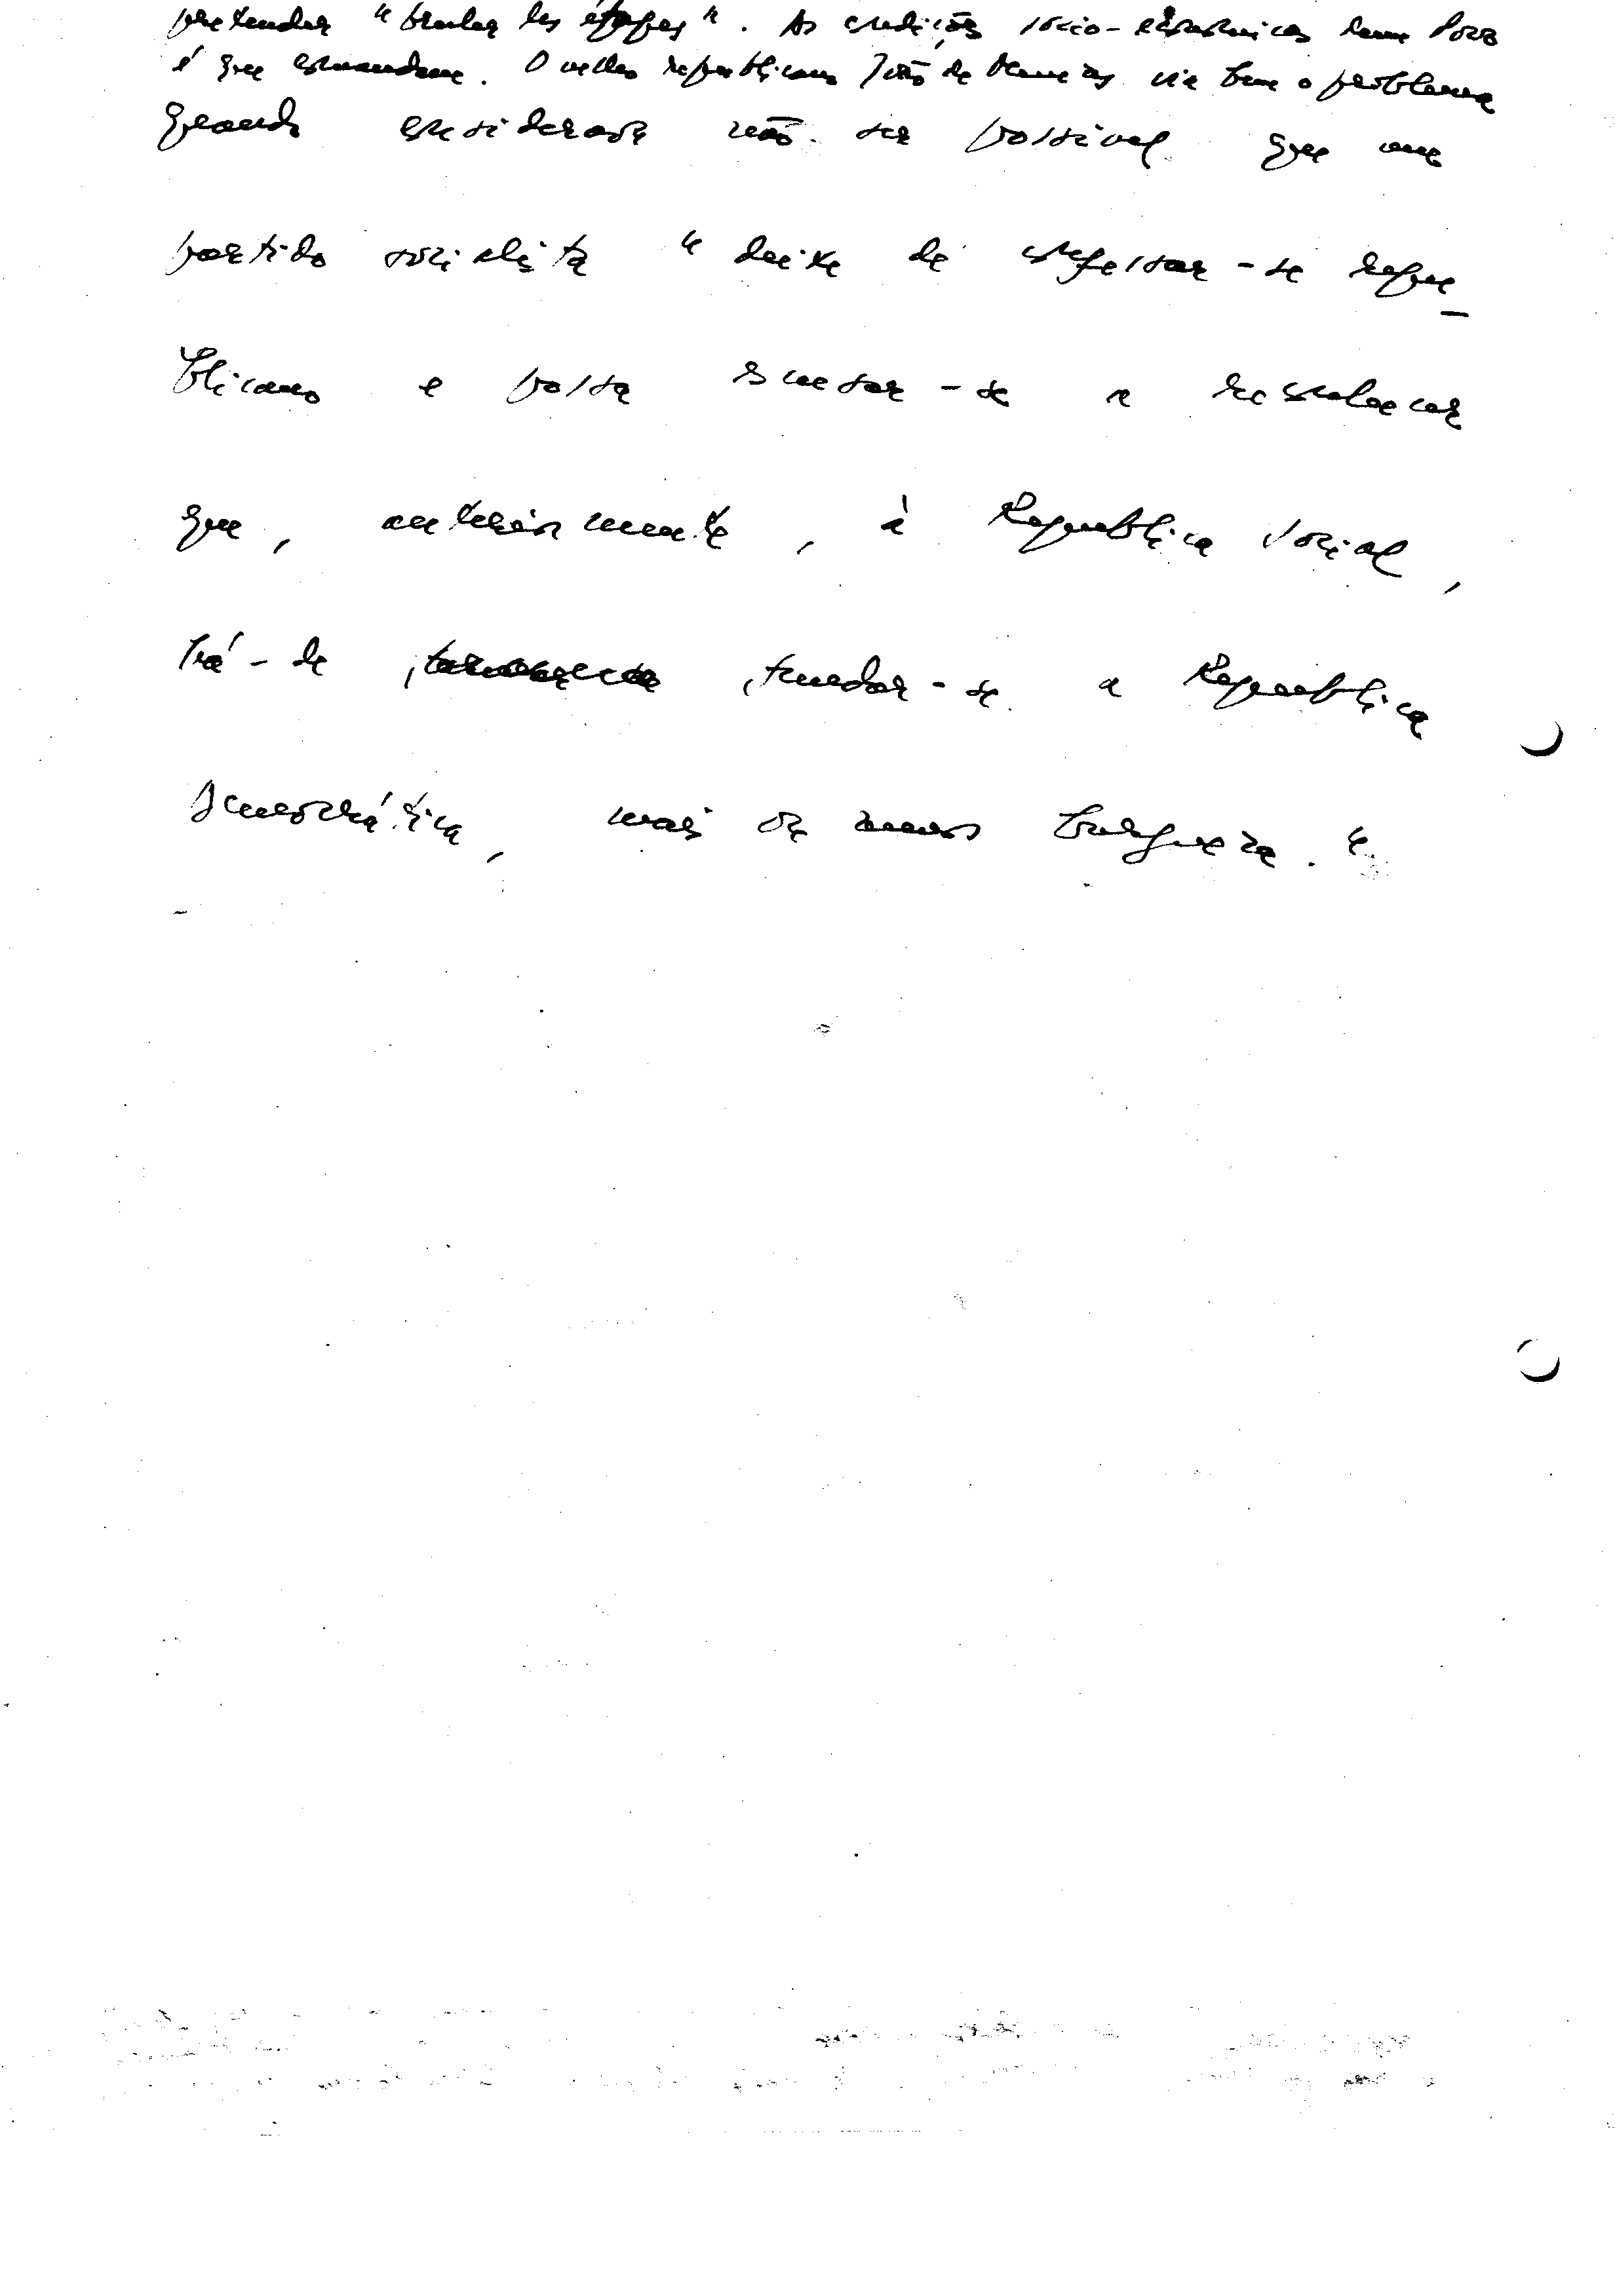 pretender "bruler les étapes". As condições sócio-económicas dum Povo
é que comandam. O velho republicano João de Menezes via bem o problema
quando considerava não ser possivel que um
partido socialista "deixe de confessar-se repu-
blicano e possa recusar-se a reconhecer
que, anteriormente, à Republica Social,
há-de fundar-se a Republica
Democrática, mais ou menos burgueza."